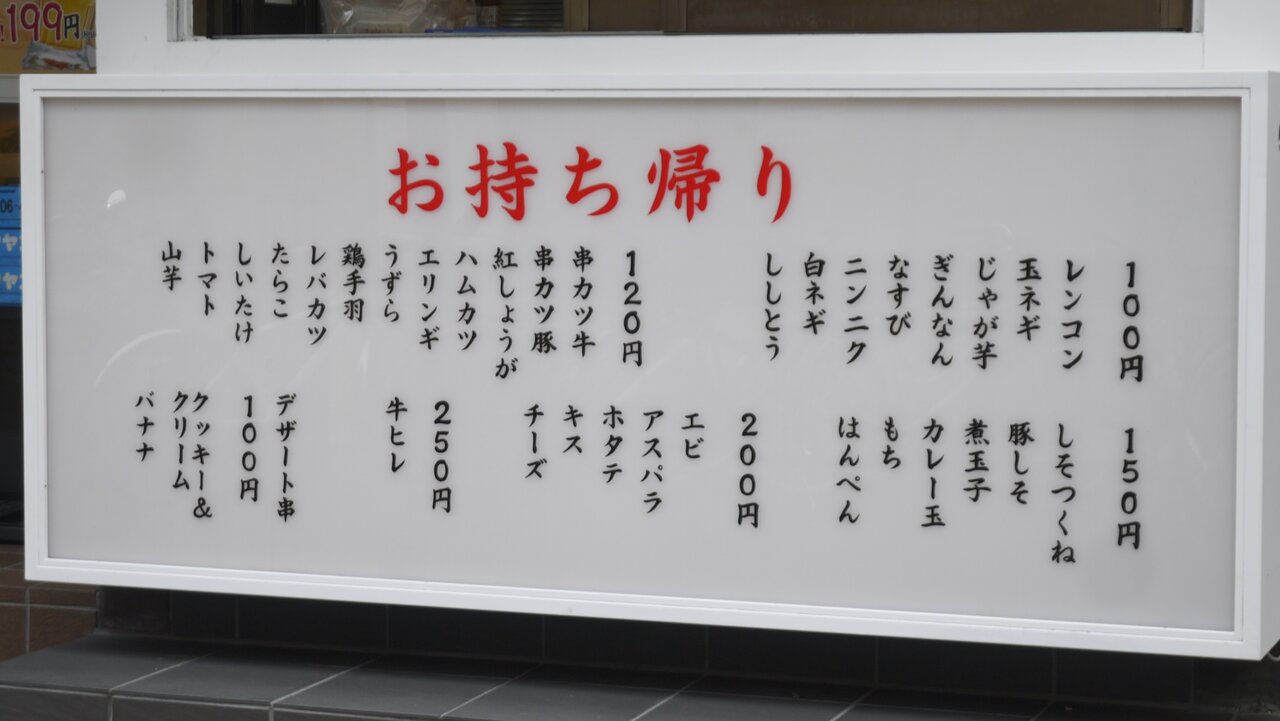 お持ち帰り
100円
レンコン
玉ネギ
じゃが芋
ぎんなん
なすび
ニンニク
白ネギ
ししとう
120円
串カツ牛
串カツ豚
紅しょうが
ハムカツ
エリンギ
うずら
鶏手羽
レバカツ
たらこ
しいたけ
トマト
山芋
150円
しそつくね
豚しそ
煮玉子
カレー玉
もち
はんぺん
200円
エビ
アスパラ
ホタテ
キス
チーズ
250円
牛ヒレ
デザート串
100円
クッキー&
クリーム
バナナ
199円
06